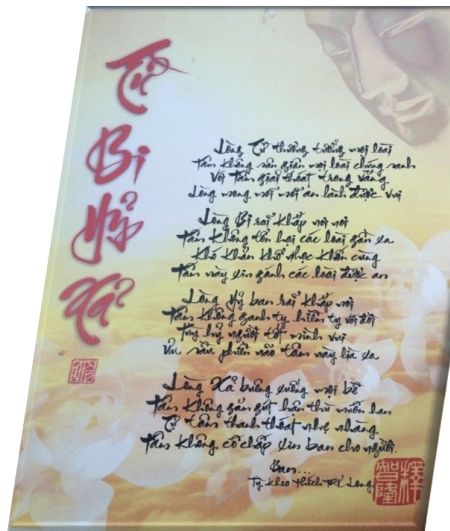 Từ
Bi
Hỷ
Xả
Lòng Từ thương tưởng mọi loài
Tâm không sân giận mọi loài chúng sanh
Với tâm giải thoát trong vắng
Lòng mong mỏi mọi an lành được vui
Lòng Bi rải khắp mọi nơi
Tâm không tổn hại các loài gần xa
Khó khăn khổ nhọc khốn cùng
Tâm này xin gánh các loài được an
Lòng Hỷ ban rải khắp nơi
Tâm không ganh tỵ hiềm tỵ với đời
Tùy hỷ người tốt mình vui
Ưu sầu phiền não tâm này lìa xa
Lòng Xả buông xuống mọi bề
Tâm không gắn gút hận thù miên man
Từ tâm thanh thoát nhẹ nhàng
Tâm không cố chấp xin ban cho người.
Ban...
Tỳ kheo Thích Trí Long
釋
智隆